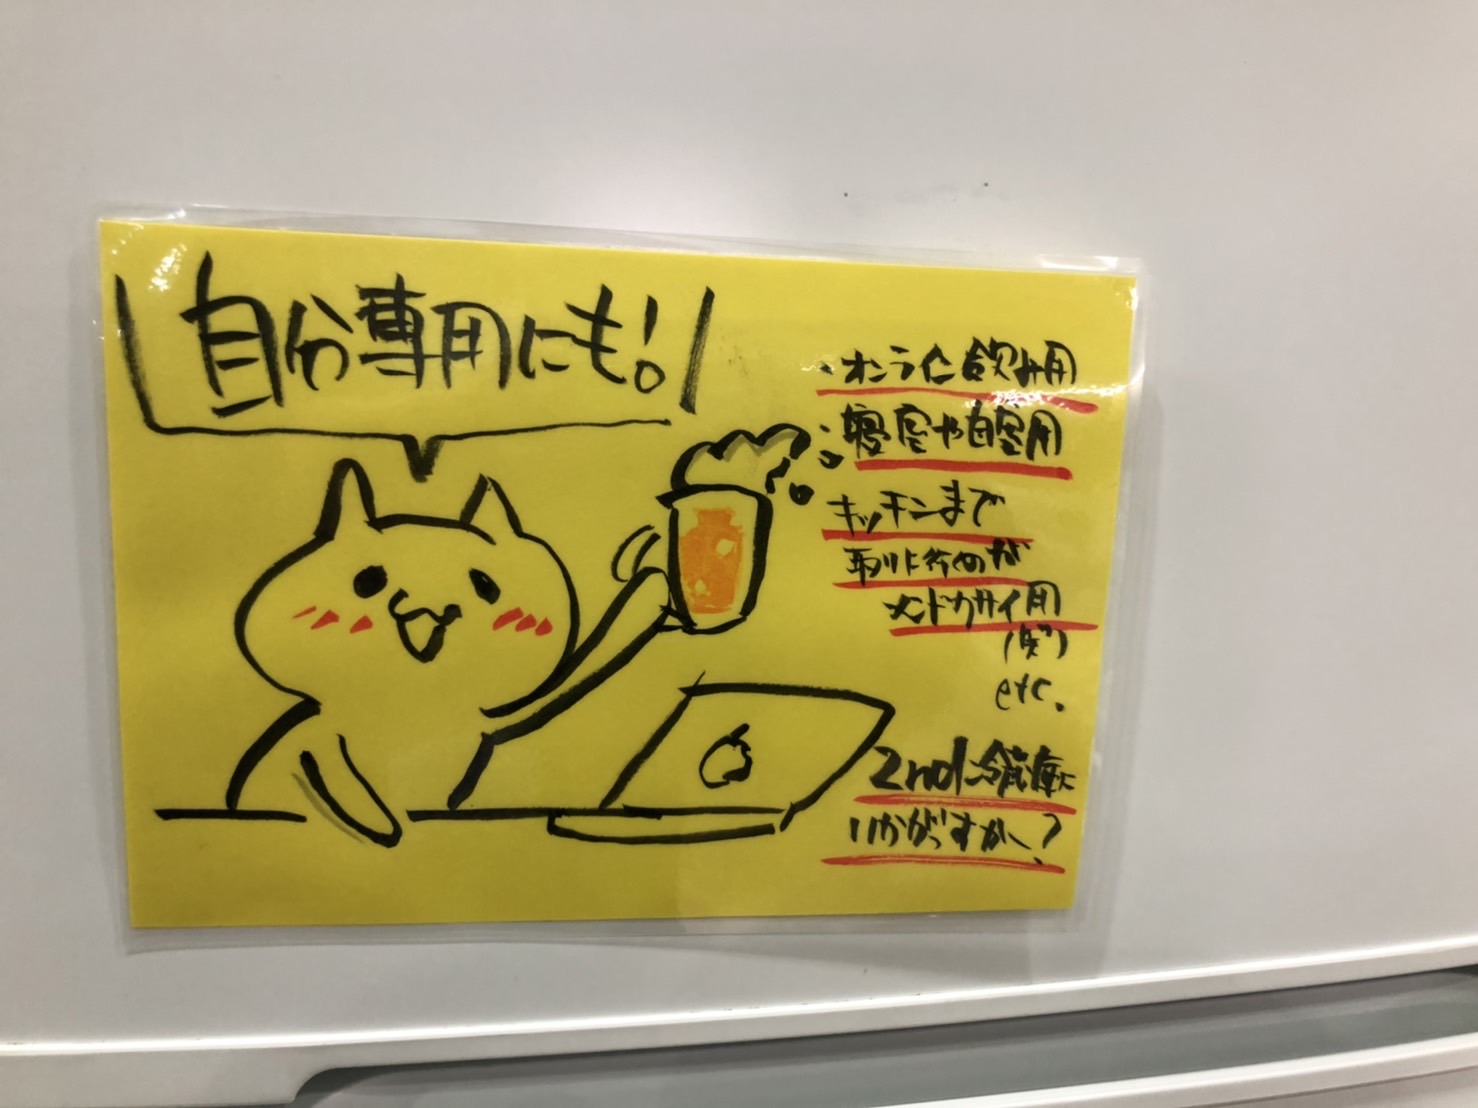 自分専用にも!。
・オンライン飲み用
・寝室や自室用
キッチンまで
取りに行くのが
メンドクサイ用
(笑)
etc.
2nd冷蔵庫に
いかがですか?